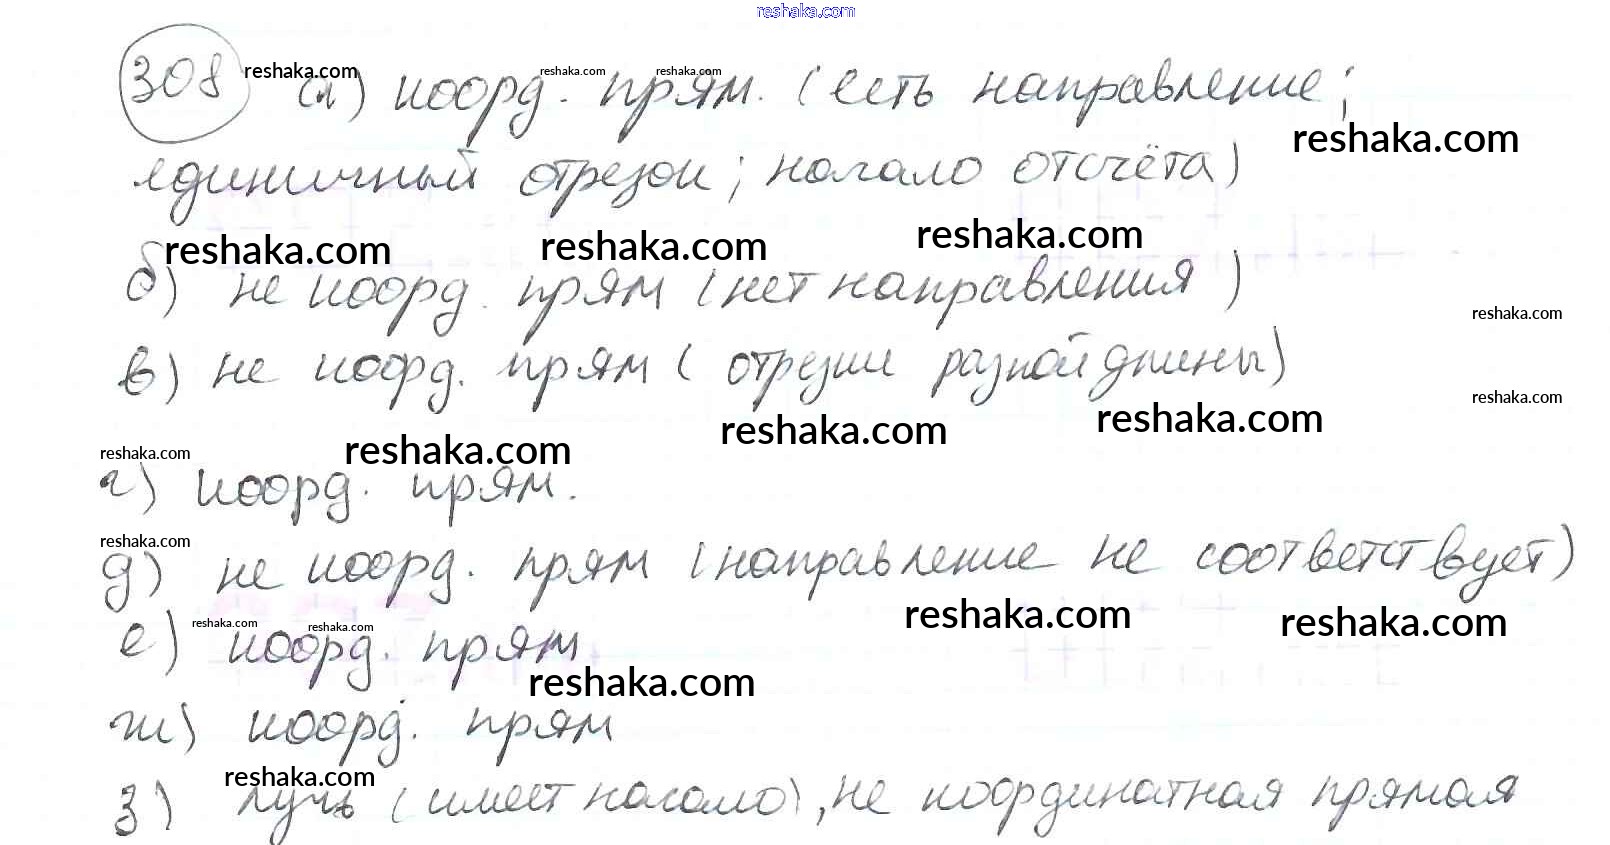 reshaka.com
308 а) коорд. прям. (есть направление;
reshaka.com reshaka.com reshaka.com
reshaka.com
единичный отрезок; начало отсчёта)
reshaka.com reshaka.com reshaka.com
б) не коорд. прям (нет направления)
reshaka.com
в) не коорд. прям (отрезки разной длины)
reshaka.com
reshaka.com reshaka.com reshaka.com
reshaka.com
г) коорд. прям.
reshaka.com
д) не коорд. прям (направление не соответствует)
reshaka.com reshaka.com
reshaka.com reshaka.com
е) коорд. прям
reshaka.com
ж) коорд. прям
reshaka.com
з) луч (имеет начало), не координатная прямая